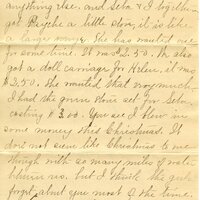 anything else. and Seba & I together
got Psyche a little stove, it is like
a larger range. She has wanted one
for some time. It was $2.50. We also
got a doll carriage for Helen, it was
$3.50. She wanted that very much.
I had the green stove set for Seba
costing $3.00. You see I blew in
some money this Christmas. It
does not seem like Christmas to me
though with as many miles of water
between us, but I think the girls
forget about you most of the time.